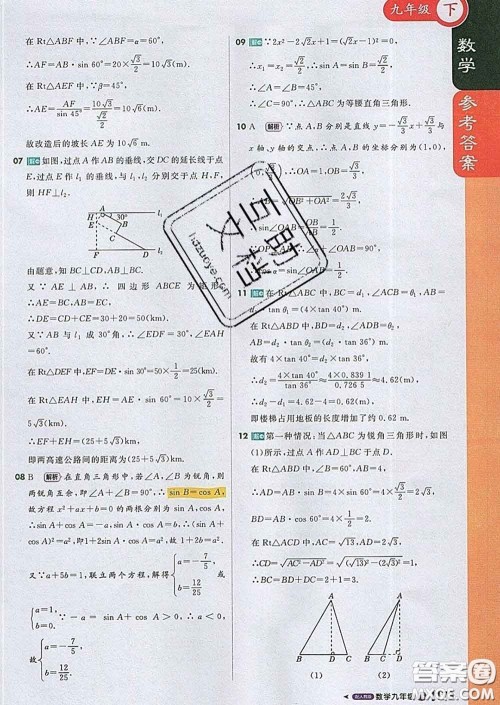 九年级 下
数学
参考答案
在 Rt△ABF 中,∵∠ABF=∠α=60°,
∴AF=AB·sin 60°=20×√3/2=10√3(m).
在 Rt△AEF 中,∵∠β=45°,
∴AE=AF/sin 45°=10√3/(√2/2)=10√6(m).
故改造后的坡长 AE 为 10√6 m.
07 如图,过点 A 作 AB 的垂线,交 DC 的延长线于点
E,过点 E 作 l₁ 的垂线,与 l₁,l₂ 分别交于点 H,F,
则 HF⊥l₂.
A 30° l₁
B
E C
F D l₂
由题意,知 BC⊥CD,AB⊥BC.
又∵AE⊥AB,∴四边形 ABCE 为矩形.
∴AE=BC,AB=EC.
∴DE=DC+CE=30+20=50(km).
又∵AB 与 l₁ 成 30°角,∴∠EDF=30°,∠EAH
=60°.
在 Rt△DEF 中,EF=DE·sin 30°=50×1/2=25(km).
在 Rt△EAH 中,EH=AE·sin 60°=10×√3/2=
5√3(km).
∴EF+EH=(25+5√3)km.
即两高速公路间的距离为(25+5√3)km.
08 B 解析 在直角三角形中,若∠A,∠B 为锐角,则
两锐角互余,即∠A+∠B=90°,∴sin B=cos A,
故方程 x²+ax+b=0 的两根分别为 sin A,cos A,
∴sin A+cos A=-a,sin A·cos A=b,∴(sin A+
cos A)²=a²,即1+2sin A·cos A=a²,故 1+2b=a².
又∵a+5b=1,联立两个方程,解得{a=-7/5, b=12/25 或
{a=1, b=0. ∵-a=sin A+cos A>0,∴a<0,
故{a=-7/5, b=12/25.
09 ∵2x²-2√2x+1=(√2x-1)²=0,
∴x₁=x₂=√2/2.∴sin A=sin B=√2/2.
∴∠A=∠B=45°.∴△ABC 为等腰直角三角形.
10 A 解析 ∵点 A,B 分别是直线 y=-√3/3x+√3/3与
x 轴,y 轴的交点,∴点 A,B 的坐标分别为(1,0),
∴OA=1,OB=√3/3.
=√(OB²+OA²)=2√3/3.
∠OAB=60°.
11
在 Rt△ABC 中,BC=d₁,∠ACB=θ₁,AB=
在 Rt△ABD 中,BD=d₂,∠ADB=36°,
AB=d₂·tan θ₂=(d₂·tan 36°)m.
故有 4×tan 40°=d₂·tan 36°.
∴d₂=4×tan 40°/tan 36°≈4×0.839 1/0.726 5≈4.62(m).
即楼梯占用地板的长度增加了约 0.62 m.
12 第一种情况:当△ABC 为锐角三角形时,如图
(1)所示,过点 A 作 AD⊥BC 于点 D.
在 Rt△ACD 中,AC=√13,AD=2√3,
∴CD=√(AC²-AD²)=√((√13)²-(2√3)²)=1.
A B D C
(1)
A B C D
(2)
数学九年级
答案圈
百文即档
hdzuoye.com